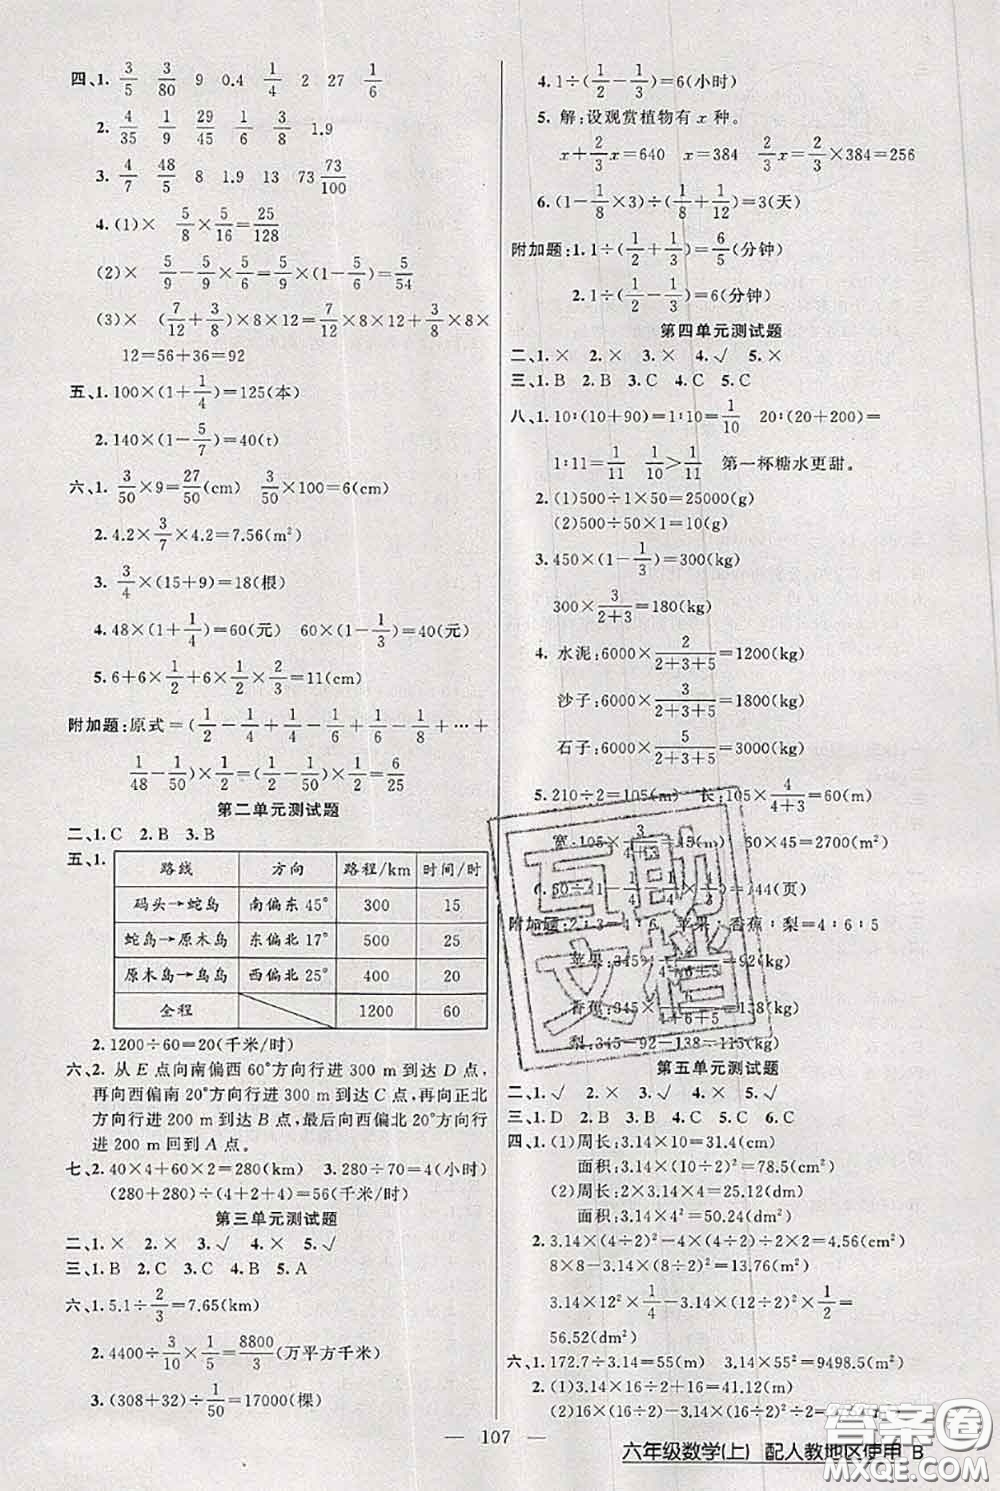 四、1. 3/5 3/80 9 0.4 1/4 2 27 1/6
2. 4/35 1/9 29/45 1/6 3/8 1.9
3. 4/7 48/5 8 1.9 13 73 73/100
4. (1)× 5/8×5/16=25/128
(2)× 5/9-5/9×1/6=5/9×(1-5/6)=5/54
(3)× (7/12+3/8)×8×12=7/12×8×12+3/8×8×
12=56+36=92
五、1. 100×(1+1/4)=125(本)
2. 140×(1-5/7)=40(t)
六、1. 3/50×9=27/50(cm) 3/50×100=6(cm)
2. 4.2×3/7×4.2=7.56(m²)
3. 3/4×(15+9)=18(根)
4. 48×(1+1/4)=60(元) 60×(1-1/3)=40(元)
5. 6+6×1/2+6×1/2×1/2... =11(cm)
附加题:原式=(1/2-1/4+1/4-1/6+1/6-1/8+…+
1/48-1/50)×1/2=(1/2-1/50)×1/2=6/25
第二单元测试题
二、1. C 2. B 3. B
五、1.
路线 方向 路程/km 时间/时
码头→蛇岛 南偏东45° 300 15
蛇岛→原木岛 东偏北17° 500 25
原木岛→鸟岛 西偏北25° 400 20
全程 1200 60
2. 1200÷60=20(千米/时)
六、2. 从E点向南偏西60°方向行进300 m到达D点,
再向西偏南20°方向行进300 m到达C点,再向正北
方向行进200 m到达B点,最后向西偏北20°方向行
进200 m回到A点。
七、2. 40×4+60×2=280(km) 3. 280÷70=4(小时)
(280+280)÷(4+2+4)=56(千米/时)
第三单元测试题
二、1. × 2. × 3. √ 4. √ 5. √
三、1. B 2. C 3. C 4. B 5. A
六、1. 5.1÷2/3=7.65(km)
2. 4400÷3/10×1/5=8800/3(万平方千米)
3. (308+32)÷1/50=17000(棵)
4. 1÷(1/2-1/3)=6(小时)
5. 解:设观赏植物有x种。
x+2/3x=640 x=384 2/3x=2/3×384=256
6. (1-1/8×3)÷(1/8+1/12)=3(天)
附加题:1. 1÷(1/2+1/3)=6/5(分钟)
2. 1÷(1/2-1/3)=6(分钟)
第四单元测试题
二、1. × 2. × 3. × 4. √ 5. ×
三、1. B 2. B 3. C 4. C 5. C
八、1. 10∶(10+90)=1∶10=1/10 20∶(20+200)=
1∶11=1/11 1/10>1/11 第一杯糖水更甜。
2. (1)500÷1×50=25000(g)
(2)500÷50×1=10(g)
3. 450×(1-1/3)=300(kg)
300×3/2+3=180(kg)
4. 水泥:6000×2/2+3+5=1200(kg)
沙子:6000×3/2+3+5=1800(kg)
石子:6000×5/2+3+5=3000(kg)
5. 210÷2=105(m) 长:105×4/4+3=60(m)
宽:105×3/4+3=45(m) 60×45=2700(m²)
=144(页)
附加题:2∶3=4∶6 苹果∶香蕉∶梨=4∶6∶5
苹果:345×4/4+6+5=92(kg)
香蕉:345×6/4+6+5=138(kg)
梨:345-92-138=115(kg)
第五单元测试题
二、1. √ 2. √ 3. × 4. × 5. √
三、1. D 2. B 3. A 4. C 5. C 6. C
四、1. (1)周长:3.14×10=31.4(cm)
面积:3.14×(10÷2)²=78.5(cm²)
(2)周长:3.14×4×2=25.12(dm)
面积:3.14×4²=50.24(dm²)
2. 3.14×(4÷2)²-4×(4÷2)÷2×2=4.56(cm²)
8×8-3.14×(8÷2)²=13.76(cm²)
3.14×12²×1/4-3.14×(12÷2)²×1/2=
56.52(dm²)
六、1. 172.7÷3.14=55(m) 3.14×55²=9498.5(m²)
2. (1)3.14×16÷2+16=41.12(m)
107
六年级数学(上) 配人教地区使用 B
互助
文档
答案圈
MXQE.COM